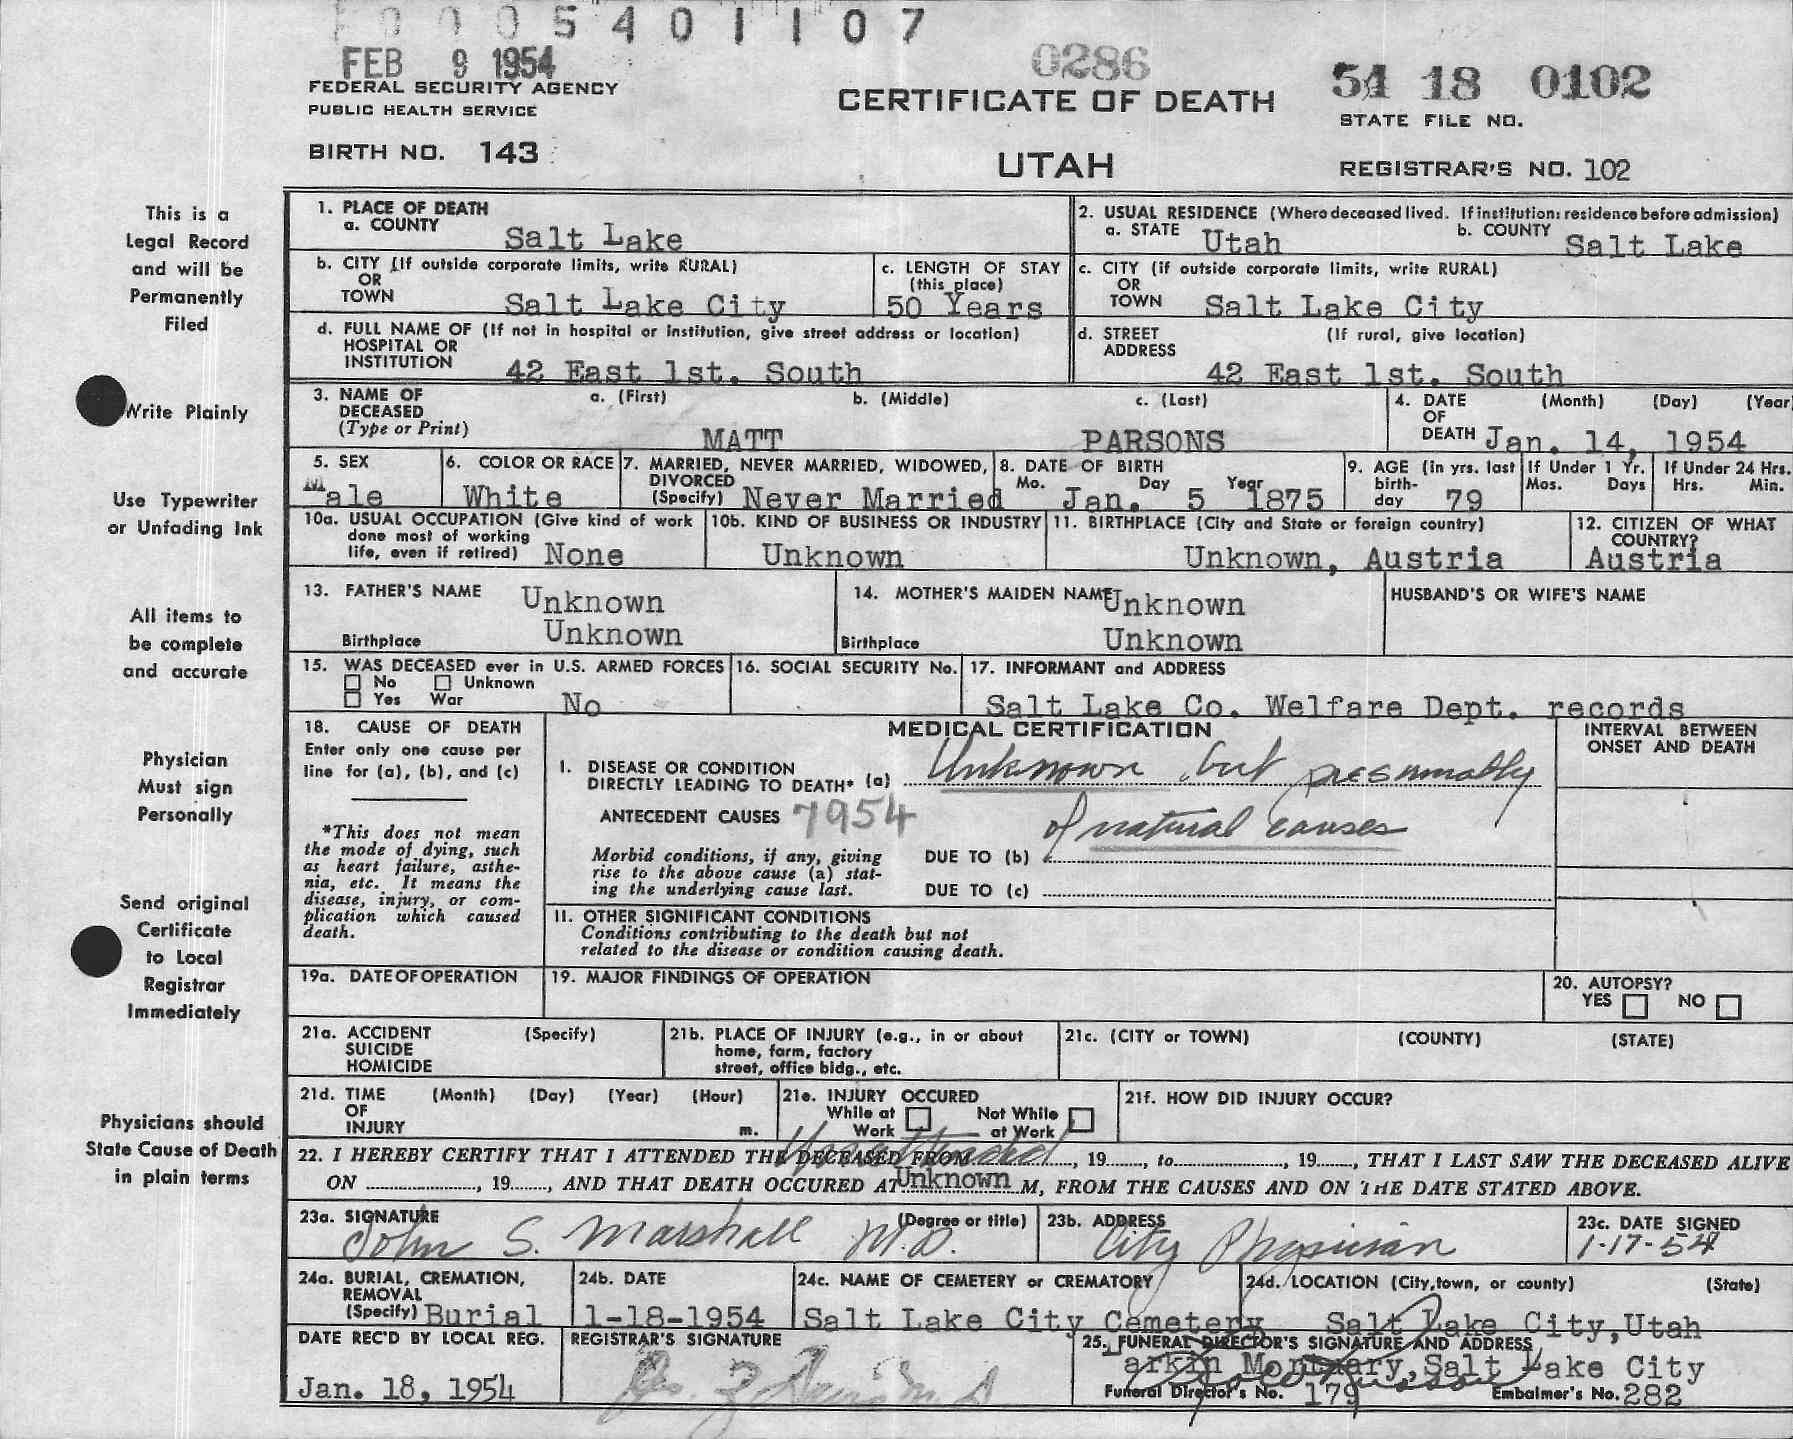 5 4 0 1 1 0 7
FEB 9 1954
0286
54 18 0102
FEDERAL SECURITY AGENCY
PUBLIC HEALTH SERVICE
CERTIFICATE OF DEATH
STATE FILE NO.
BIRTH NO. 143
UTAH
REGISTRAR'S NO. 102
This is a
Legal Record
and will be
Permanently
Filed
Write Plainly
Use Typewriter
or Unfading Ink
All items to
be complete
and accurate
Physician
Must sign
Personally
Send original
Certificate
to Local
Registrar
Immediately
Physicians should
State Cause of Death
in plain terms
1. PLACE OF DEATH
a. COUNTY Salt Lake
2. USUAL RESIDENCE (Where deceased lived. If institution: residence before admission)
a. STATE Utah b. COUNTY Salt Lake
b. CITY (If outside corporate limits, write RURAL)
OR
TOWN Salt Lake City
c. LENGTH OF STAY
(this place)
50 Years
c. CITY (if outside corporate limits, write RURAL)
OR
TOWN Salt Lake City
d. FULL NAME OF (If not in hospital or institution, give street address or location)
HOSPITAL OR
INSTITUTION 42 East 1st. South
d. STREET (If rural, give location)
ADDRESS
42 East 1st. South
3. NAME OF a. (First) b. (Middle) c. (Last)
DECEASED
(Type or Print) MATT PARSONS
4. DATE (Month) (Day) (Year
OF
DEATH Jan. 14, 1954
5. SEX
Male
6. COLOR OR RACE
White
7. MARRIED, NEVER MARRIED, WIDOWED,
DIVORCED
(Specify) Never Married
8. DATE OF BIRTH
Mo. Day Year
Jan. 5 1875
9. AGE (in yrs. last
birth-
day 79
If Under 1 Yr.
Mos. Days
If Under 24 Hrs.
Hrs. Min.
10a. USUAL OCCUPATION (Give kind of work
done most of working
life, even if retired) None
10b. KIND OF BUSINESS OR INDUSTRY
Unknown
11. BIRTHPLACE (City and State or foreign country)
Unknown, Austria
12. CITIZEN OF WHAT
COUNTRY?
Austria
13. FATHER'S NAME Unknown
Birthplace Unknown
14. MOTHER'S MAIDEN NAME Unknown
Birthplace Unknown
HUSBAND'S OR WIFE'S NAME
15. WAS DECEASED ever in U.S. ARMED FORCES
No Unknown
Yes War No
16. SOCIAL SECURITY No.
17. INFORMANT and ADDRESS
Salt Lake Co. Welfare Dept. records
18. CAUSE OF DEATH
Enter only one cause per
line for (a), (b), and (c)
*This does not mean
the mode of dying, such
as heart failure, asthe-
nia, etc. It means the
disease, injury, or com-
plication which caused
death.
MEDICAL CERTIFICATION
INTERVAL BETWEEN
ONSET AND DEATH
I. DISEASE OR CONDITION
DIRECTLY LEADING TO DEATH* (a) Unknown but presumably
ANTECEDENT CAUSES 7954 of natural causes
Morbid conditions, if any, giving
rise to the above cause (a) stat-
ing the underlying cause last.
DUE TO (b)
DUE TO (c)
II. OTHER SIGNIFICANT CONDITIONS
Conditions contributing to the death but not
related to the disease or condition causing death.
19a. DATE OF OPERATION
19. MAJOR FINDINGS OF OPERATION
20. AUTOPSY?
YES NO
21a. ACCIDENT (Specify)
SUICIDE
HOMICIDE
21b. PLACE OF INJURY (e.g., in or about
home, farm, factory
street, office bldg., etc.
21c. (CITY or TOWN) (COUNTY) (STATE)
21d. TIME (Month) (Day) (Year) (Hour)
OF
INJURY m.
21e. INJURY OCCURED
While at Not While
Work at Work
21f. HOW DID INJURY OCCUR?
Unattended
22. I HEREBY CERTIFY THAT I ATTENDED THE DECEASED FROM, 19, to, 19, THAT I LAST SAW THE DECEASED ALIVE
ON, 19, AND THAT DEATH OCCURED AT Unknown M, FROM THE CAUSES AND ON THE DATE STATED ABOVE.
23a. SIGNATURE (Degree or title)
John S. Marshall M.D.
23b. ADDRESS
City Physician
23c. DATE SIGNED
1-17-54
24a. BURIAL, CREMATION,
REMOVAL
(Specify) Burial
24b. DATE
1-18-1954
24c. NAME OF CEMETERY or CREMATORY
Salt Lake City Cemetery
24d. LOCATION (City, town, or county) (State)
Salt Lake City, Utah
DATE REC'D BY LOCAL REG.
Jan. 18, 1954
REGISTRAR'S SIGNATURE
25. FUNERAL DIRECTOR'S SIGNATURE AND ADDRESS
Larkin Mortuary, Salt Lake City
Funeral Director's No. 179 Embalmer's No. 282